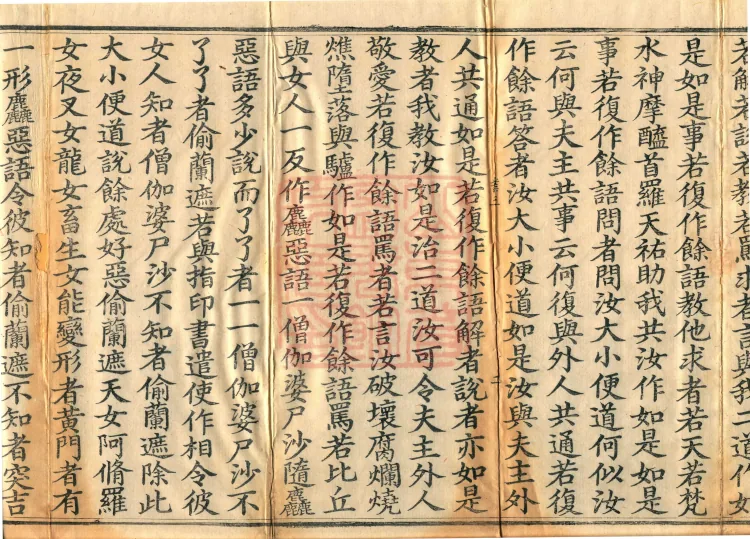 求者言與我二道作如
是如是事若復作餘語教他求者若天若梵
水神摩醯首羅天祐助我共汝作如是如是
事若復作餘語問者問汝大小便道何似汝
云何與夫主共事云何復與外人共通若復
作餘語答者汝大小便道如是汝與夫主外
人共通如是若復作餘語解者說者亦如是
教者我教汝如是治二道汝可令夫主外人
敬愛若復作餘語罵者若言汝破壞腐爛燒
燋墮落與驢作如是若復作餘語罵若比丘
與女人一反作麤惡語一僧伽婆尸沙隨麤
惡語多少說而了了者一一僧伽婆尸沙不
了了者偷蘭遮若與指印書遣使作相令彼
女人知者僧伽婆尸沙不知者偷蘭遮除此
大小便道說餘處好惡偷蘭遮天女阿脩羅
女夜叉女龍女畜生女能變形者黃門者有
一形麤惡語令彼知者偷蘭遮不知者突吉